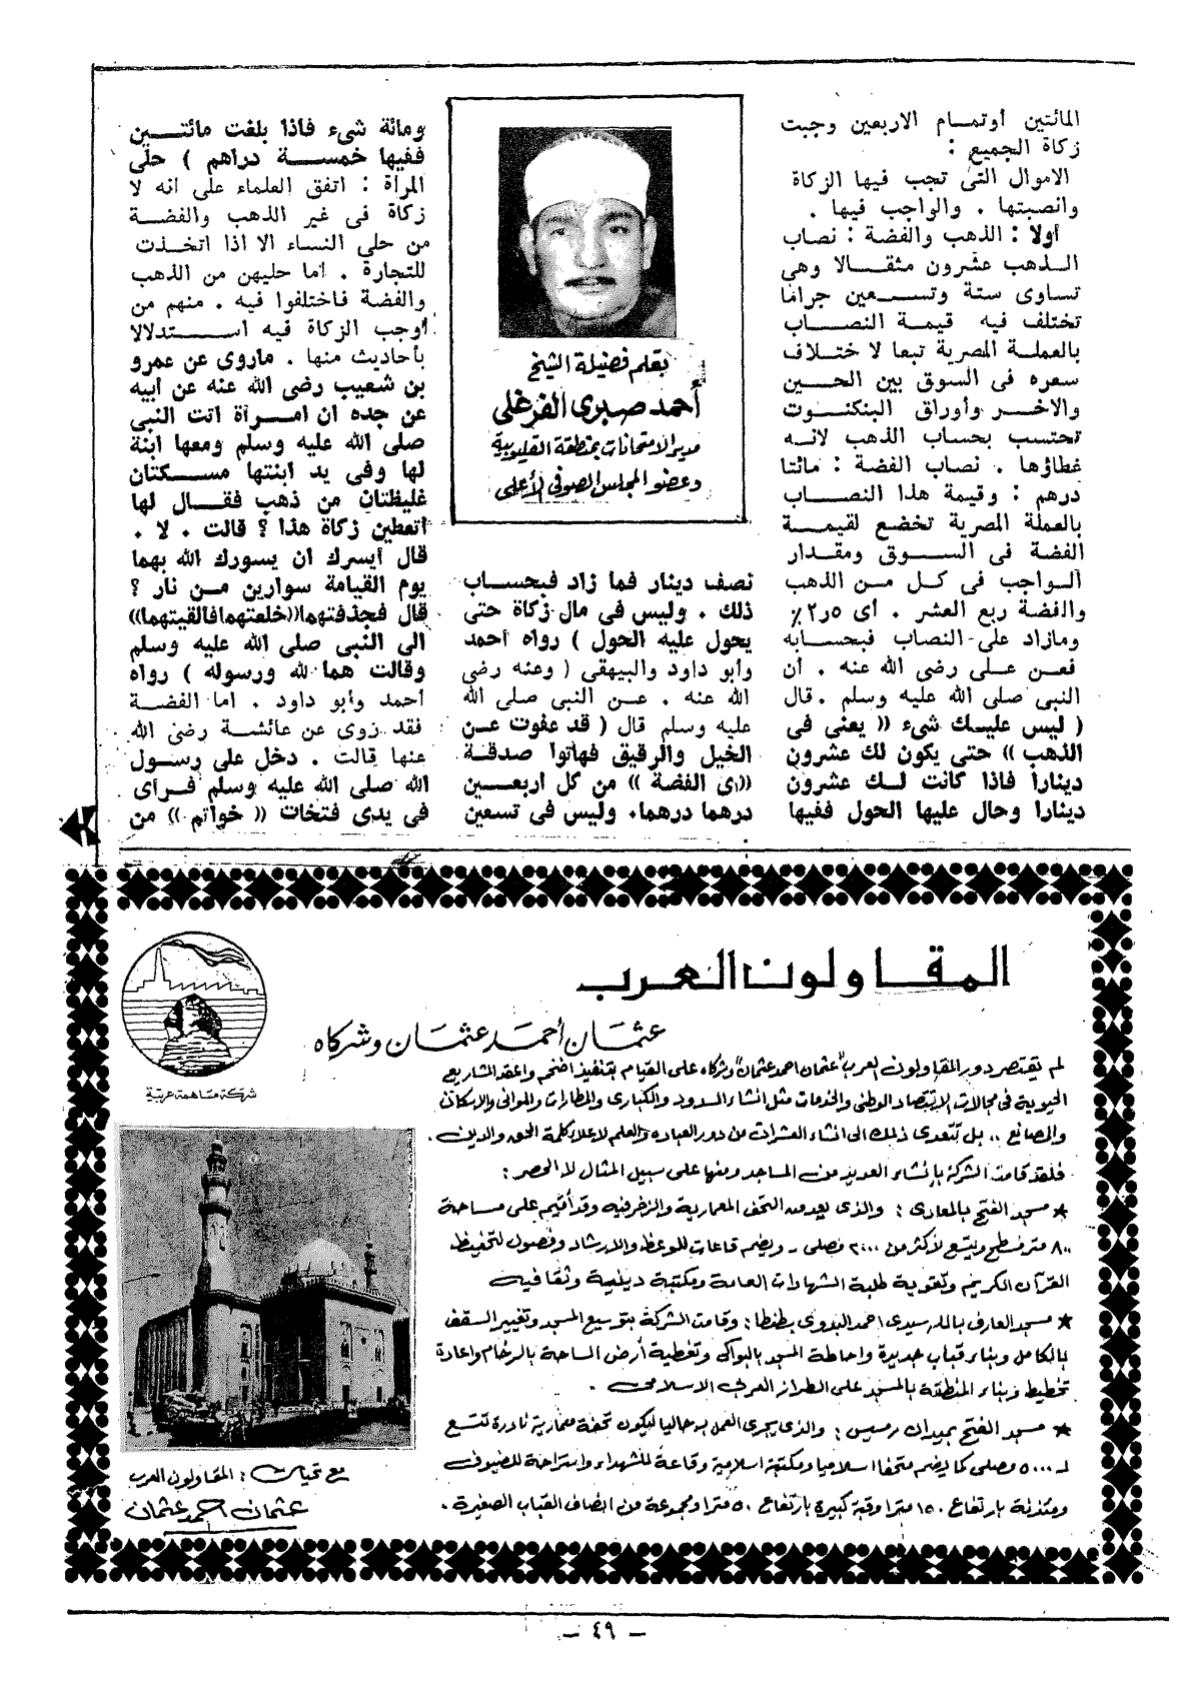 المائتين أوتمام الاربعين وجبت
زكاة الجميع :
الاموال التى تجب فيها الزكاة
وانصبتها . والواجب فيها .
أولا : الذهب والفضة : نصاب
الذهب عشرون مثقالا وهى
تساوى ستة وتسعين جراما
تختلف فيه قيمة النصاب
بالعملة المصرية تبعا لاختلاف
سعره فى السوق بين الحين
والاخر وأوراق البنكنوت
تحتسب بحساب الذهب لانه
غطاؤها . نصاب الفضة : مائتا
درهم : وقيمة هذا النصاب
بالعملة المصرية تخضع لقيمة
الفضة فى السوق ومقدار
الواجب فى كل من الذهب
والفضة ربع العشر . أى ٢٫٥٪
ومازاد على النصاب فبحسابه
فعن على رضى الله عنه . أن
النبى صلى الله عليه وسلم . قال
( ليس عليك شىء (( يعنى فى
الذهب )) حتى يكون لك عشرون
دينارا فاذا كانت لك عشرون
دينارا وحال عليها الحول ففيها
بقلم فضيلة الشيخ
أحمد صبرى الفرغلى
مدير الامتحانات بمنطقة القليوبية
وعضو المجلس الصوفى الأعلى
نصف دينار فما زاد فبحساب
ذلك . وليس فى مال زكاة حتى
يحول عليه الحول ) رواه أحمد
وأبو داود والبيهقى ( وعنه رضى
الله عنه . عن النبى صلى الله
عليه وسلم قال ( قد عفوت عن
الخيل والرقيق فهاتوا صدقة
((ى الفضة )) من كل اربعين
درهما درهما. وليس فى تسعين
ومائة شىء فاذا بلغت مائتين
ففيها خمسة دراهم ) حلى
المرأة : اتفق العلماء على انه لا
زكاة فى غير الذهب والفضة
من حلى النساء الا اذا اتخذت
للتجارة . أما حليهن من الذهب
والفضة فاختلفوا فيه . منهم من
أوجب الزكاة فيه استدلالا
بأحاديث منها . ماروى عن عمرو
بن شعيب رضى الله عنه عن أبيه
عن جده ان امرأة اتت النبى
صلى الله عليه وسلم ومعها ابنة
لها وفى يد ابنتها مسكتان
غليظتان من ذهب فقال لها
أتعطين زكاة هذا ؟ قالت . لا .
قال أيسرك ان يسورك الله بهما
يوم القيامة سوارين من نار ؟
قال فجذفتهما((خلعتهما فالقيتهما))
الى النبى صلى الله عليه وسلم
وقالت هما لله ورسوله ) رواه
أحمد وأبو داود . اما الفضة
فقد روى عن عائشة رضى الله
عنها قالت . دخل على رسول
الله صلى الله عليه وسلم فرأى
فى يدى فتخات (( خواتم )) من
المقاولون العرب
عثمان أحمد عثمان وشركاه
شركة مساهمة عربية
لم يقتصر دور المقاولون العرب "عثمان احمد عثمان" وشركاه على القيام بتنفيذ اضخم واعقد المشاريع
الحيوية فى مجالات الاقتصاد الوطنى والخدمات مثل انشاء السدود والكبارى والمطارات والموانى والاسكان
والمصانع .. بل تتعدى ذلك الى انشاء العشرات من دور العبادة والعلم لاعلاء كلمة الحق والدين .
فلقد قامت الشركة بإنشاء العديد من المساجد ومنها على سبيل المثال لا الحصر :
★ مسجد الفتح بالمعادى : والذى يعد من التحف المعمارية والزخرفية وقد أقيم على مساحة
٨٠٠ متر مسطح ويتسع لأكثر من ٢٠٠٠ مصلى - ويضم قاعات للوعظ والارشاد وفصول لتحفيظ
القرآن الكريم وتقوية طلبة الشهادات العامة ومكتبة دينية وثقافية
★ مسجد العارف بالله سيدى احمد البدوى بطنطا : وقامت الشركة بتوسيع المسجد وتغيير السقف
بالكامل وبناء قباب جديدة واحاطة المسجد بالبواكى وتغطية أرض الساحة بالرخام واعادة
تخطيط وبناء المنطقة بالمسجد على الطراز العربى الاسلامى .
★ مسجد الفتح بميدان رمسيس : والذى يجرى العمل به حاليا ليكون تحفة معمارية نادرة تتسع
لـ ٥٠٠٠ مصلى كما يضم متحفا اسلاميا ومكتبة اسلامية وقاعة للشهداء واستراحة للضيوف
ومئذنة بارتفاع ١٥٠ مترا وقبة كبيرة بارتفاع ٥٠ مترا ومجموعة من انصاف القباب الصغيرة .
مع تحيات : المقاولون العرب
عثمان احمد عثمان
- ٤٩ -